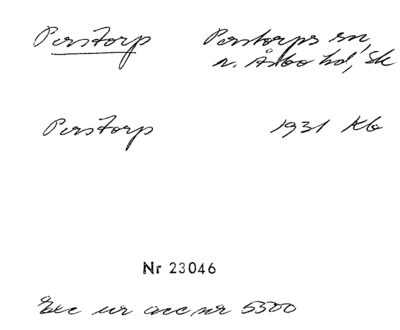 Perstorp Perstorps sn,
n. Åsbo hd, Sk
Perstorp 1931 Kb
Nr 23046
Exc ur acc nr 5300